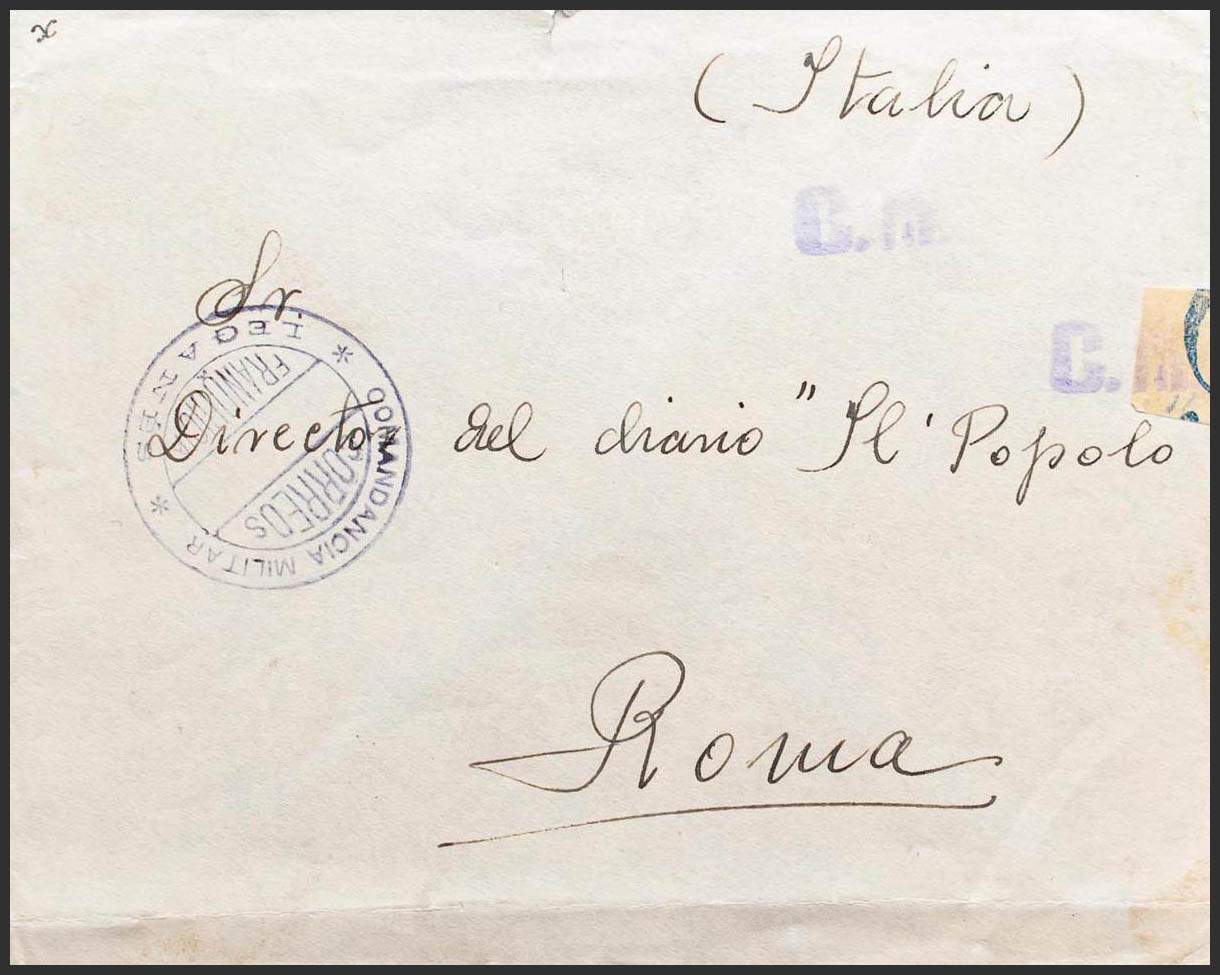 (Italia)
C.m.
C.m.
Sr.
Director del diario "Il Popolo
Roma
* LEGANES *
COMANDANCIA MILITAR
FRANQUICIA
CORREOS